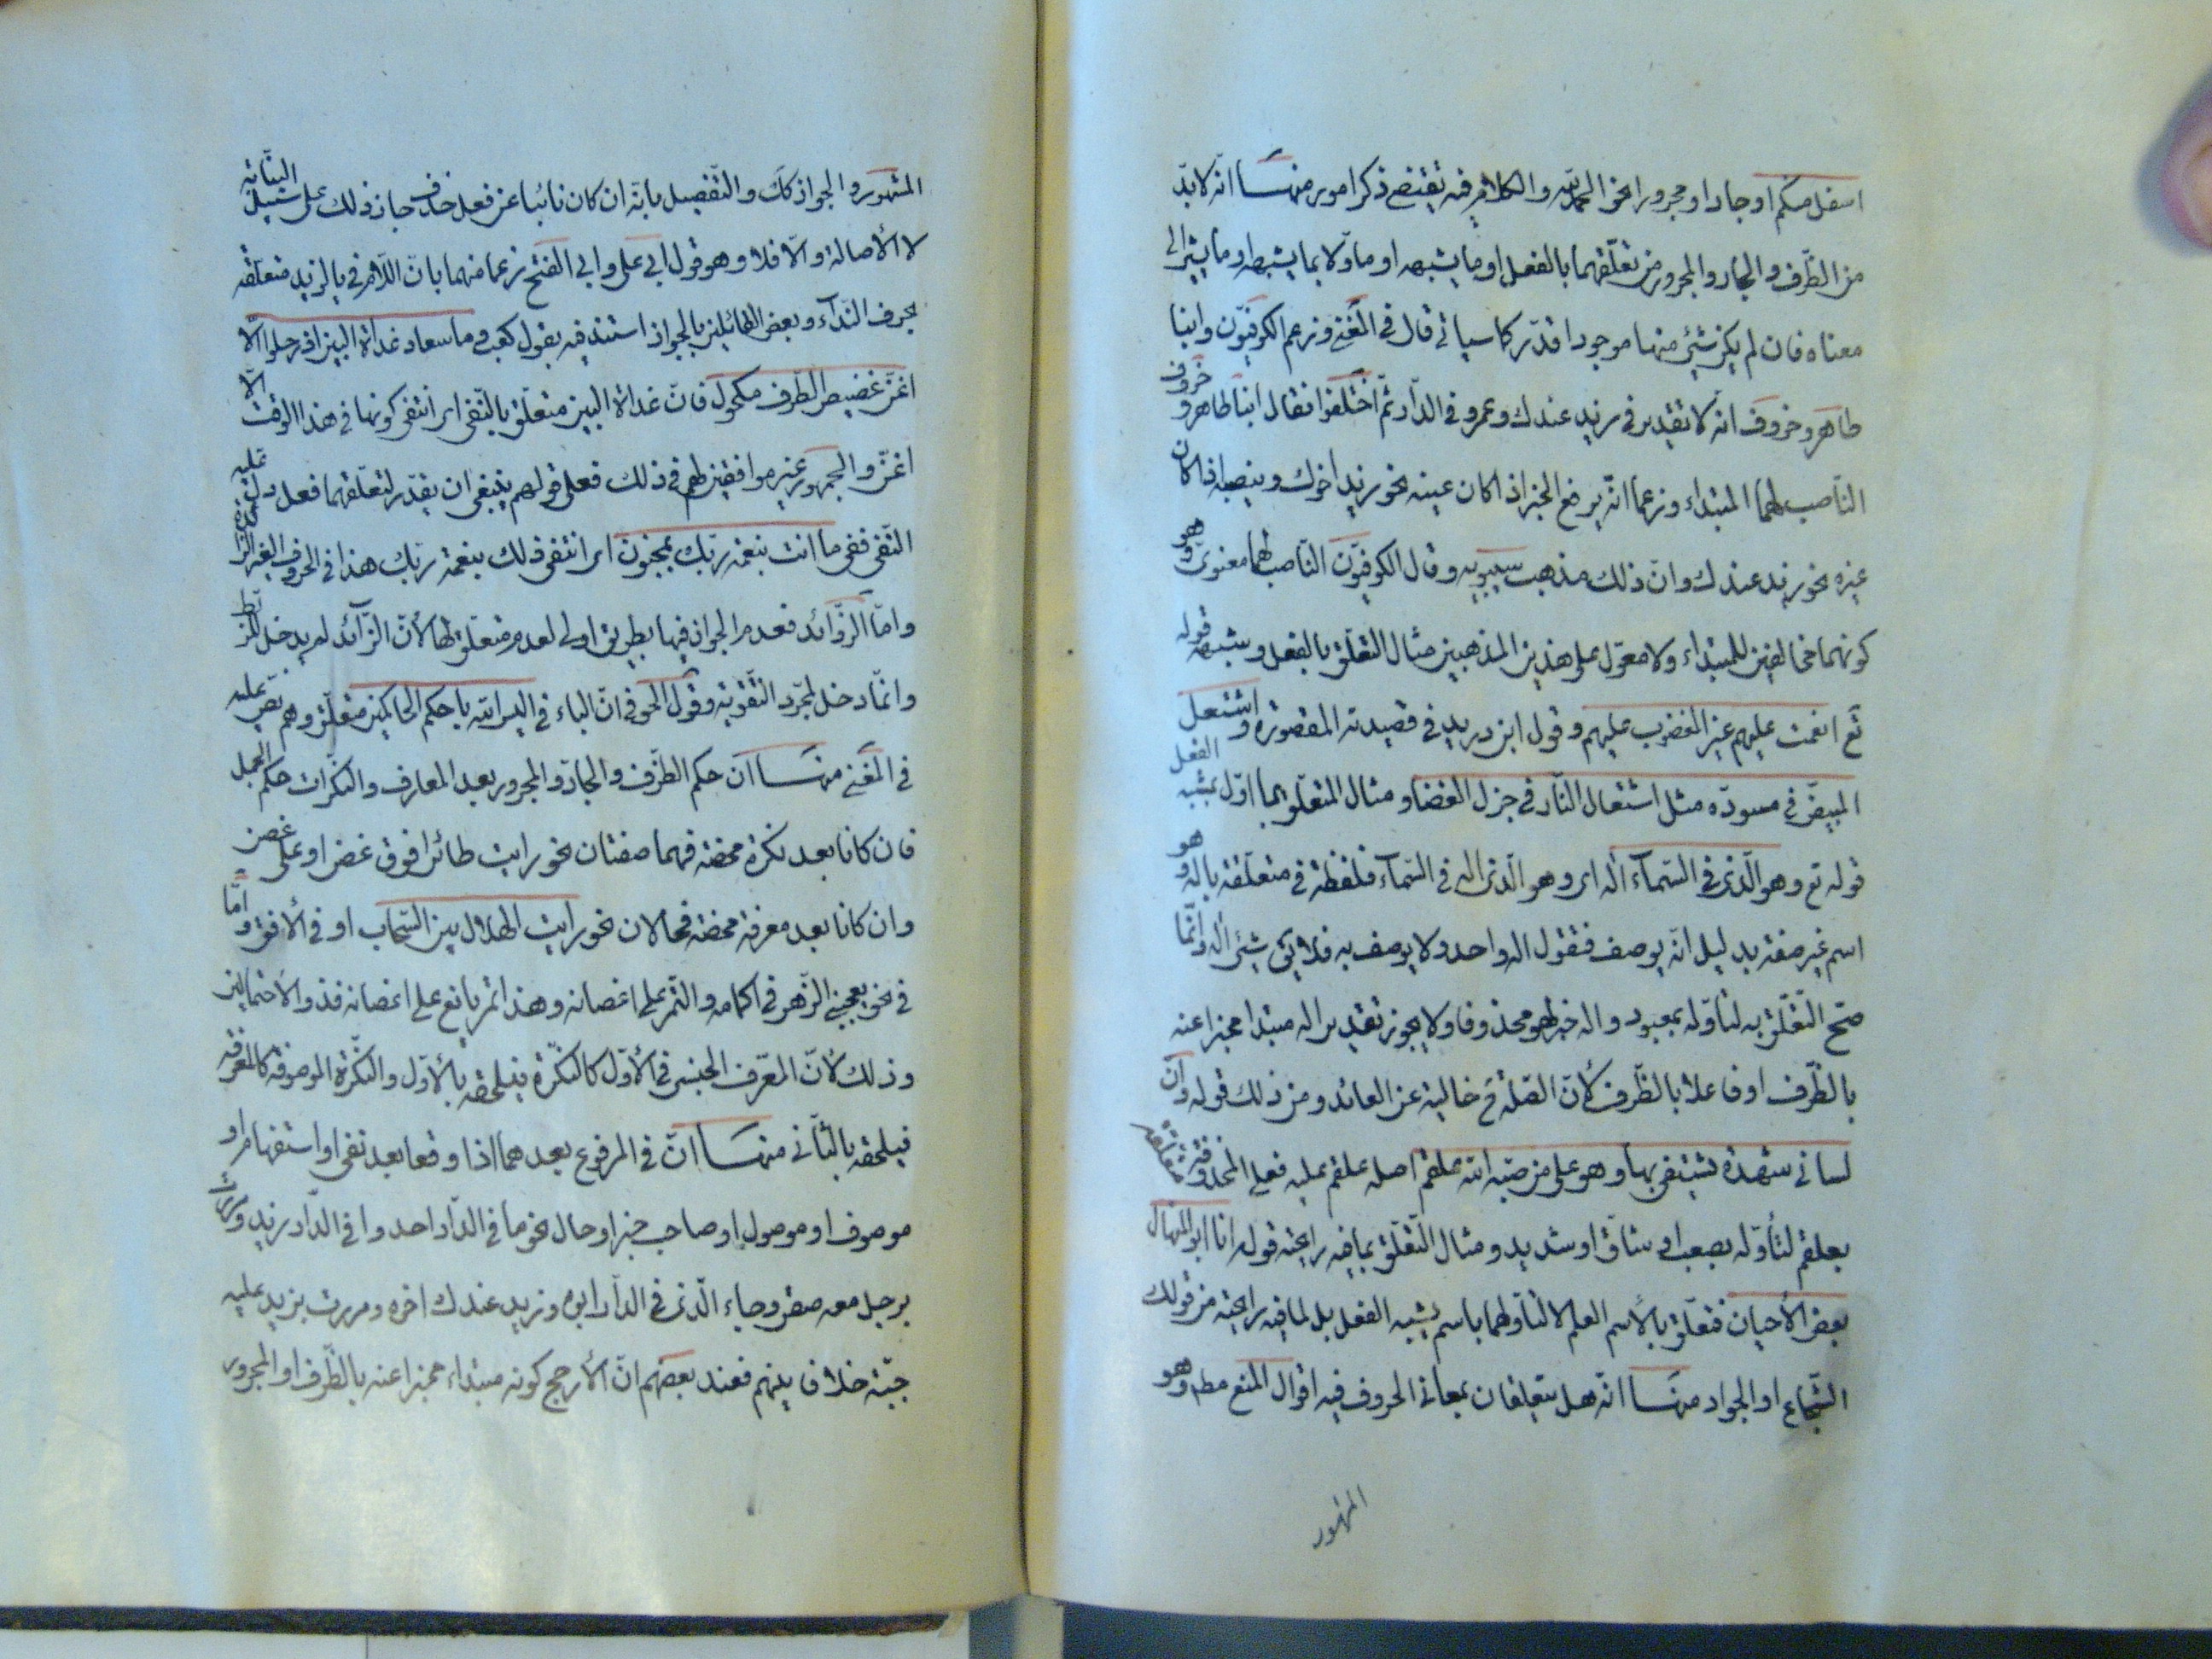 اسفل منكم او جارا ومجرورا نحو الحمد لله والكلام فيه يقتضى ذكر امور منها انه لا بد
من الظرف والجار والمجرور من تعلقهما بالفعل او ما يشبهه او ما اول بما يشبهه او ما يشير الى
معناه فان لم يكن شئ منها موجودا قدر كما سياتى قال فى المغنى وزعم الكوفيون وابنا
طاهر وخروف انه لا تقدير فى زيد عندك وعمرو فى الدار ثم اختلفوا فقال ابنا طاهر وخروف
الناصب لهما المبتداء وزعما انه يرفع الخبر اذا كان عينه نحو زيد اخوك وينصبه اذا كان
غيره نحو زيد عندك وان ذلك مذهب سيبويه وقال الكوفيون الناصب لهما معنوى وهو
كونهما مخالفين للمبتداء ولا معول على هذين المذهبين مثال التعلق بالفعل وشبهه قوله
تع انعمت عليهم غير المغضوب عليهم وقول ابن دريد فى قصيدته المقصورة واشتعل
المبيض فى مسوده مثل اشتعال النار فى جزل الغضا ومثال المتعلق بما اول بمشبه الفعل
قوله تع وهو الذى فى السماء اله اى وهو الذى اله فى السماء فلفظة فى متعلقة باله وهو
اسم غير صفة بدليل انه يوصف فتقول اله واحد ولا يوصف به فلا يق شئ اله وانما
صح التعلق به لتاوله بمعبود واله خبر لهو محذوفا ولا يجوز تقدير اله مبتدا مخبرا عنه
بالظرف او فاعلا بالظرف لأن الصلة ح خالية عن العائد ومن ذلك قوله وان
لسانى شهدة يشتفى بها وهو على من صبه الله علقم اصله علقم عليه فعلى المحذوفة متعلقة
بعلقم لتأوله بصعب او شاق او شديد ومثال التعلق بما فيه رايحته قوله انا ابو المنهال
بعض الأحيان فتعلق بالأسم العلم لا لتاولهما باسم يشبه الفعل بل لما فيه رايحته من قولك
الشجاع او الجواد منها انه هل يتعلقان بمعانى الحروف فيه اقوال المنع مطم وهو
المشهور
المشهور والجواز كك والتفصيل بانه ان كان نائبا عن فعل حذف جاز ذلك على سبيل النيابة
لا الأصالة والا فلا وهو قول ابى على وابى الفتح زعما منهما بان اللام فى يا لزيد متعلقة
بحرف النداء وبعض القائلين بالجواز استند فيه بقول كعب وما سعاد غداة البين اذ رحلوا الا
اغن غضيض الطرف مكحول فان غداة البين متعلق بالنفى اى انتفى كونها فى هذا الوقت الا
اغن والجمهور غير موافقين لهم فى ذلك فعلى قولهم ينبغى ان يقدر لتعلقهما فعل دل عليه
النفى ففى ما انت بنعمة ربك بمجنون اى انتفى ذلك بنعمة ربك هذا فى الحروف الغير الزائدة
واما الزوائد فعدم الجواز فيها بطريق اولى لعدم متعلق لها لأن الزائد لم يدخل للربط
وانما دخل لمجرد التقوية وقول الحوفى ان الباء فى اليس الله باحكم الحاكمين متعلق وهم نص عليه
فى المغنى منها ان حكم الظرف والجار والمجرور بعد المعارف والنكرات حكم الجمل
فان كانا بعد نكرة محضة فهما صفتان نحو رايت طائرا فوق غصن او على غصن
وان كانا بعد معرفة محضة فحالان نحو رايت الهلال بين السحاب او فى الأفق واما
فى نحو يعجبنى الزهر فى اكمامه والثمر على اغصانه وهذا ثمر يانع على اغصانه فذو الأحتمالين
وذلك لأن المعرف الجنسى فى الأول كالنكرة فيلحقه بالأول والنكرة الموصوفة كالمعرفة
فيلحقه بالثانى منها ان فى المرفوع بعدهما اذا وقعا بعد نفى او استفهام او
موصوف او موصول او صاحب خبر او حال نحو ما فى الدار احد وا فى الدار زيد ومررت
برجل معه صقر وجاء الذى فى الدار ابوه وزيد عندك اخوه ومررت بزيد عليه
جبة خلاف بينهم فعند بعضهم ان الأرجح كونه مبتداء مخبرا عنه بالظرف او المجرور